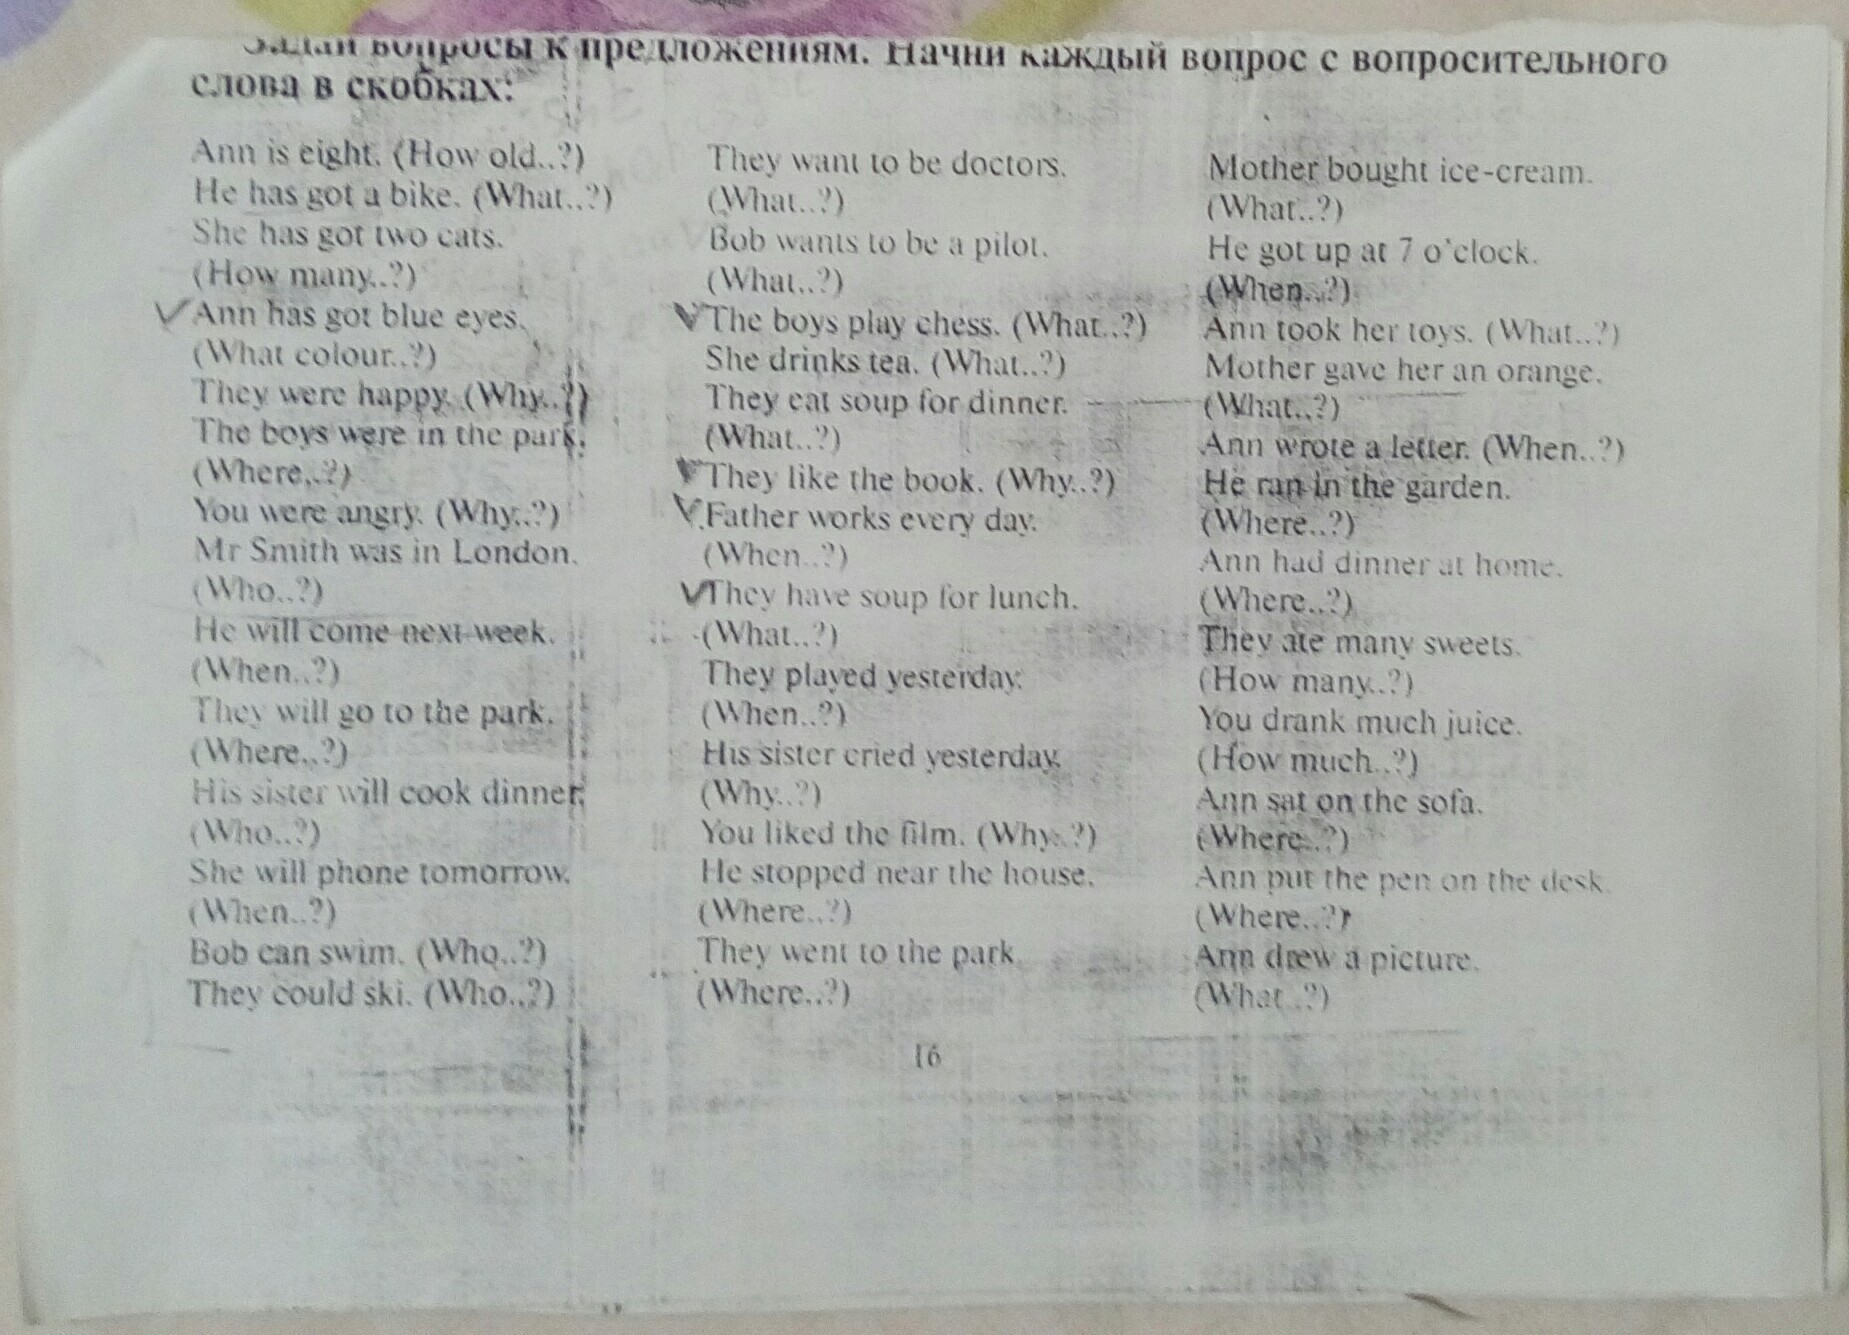 Задай вопросы к предложениям. Начни каждый вопрос с вопросительного
слова в скобках:
Ann is eight. (How old..?)
He has got a bike. (What..?)
She has got two cats.
(How many..?)
Ann has got blue eyes.
(What colour..?)
They were happy. (Why..?)
The boys were in the park.
(Where..?)
You were angry. (Why..?)
Mr Smith was in London.
(Who..?)
He will come next week.
(When..?)
They will go to the park.
(Where..?)
His sister will cook dinner.
(Who..?)
She will phone tomorrow.
(When..?)
Bob can swim. (Who..?)
They could ski. (Who..?)
They want to be doctors.
(What..?)
Bob wants to be a pilot.
(What..?)
The boys play chess. (What..?)
She drinks tea. (What..?)
They eat soup for dinner.
(What..?)
They like the book. (Why..?)
Father works every day.
(When..?)
They have soup for lunch.
(What..?)
They played yesterday.
(When..?)
His sister cried yesterday.
(Why..?)
You liked the film. (Why..?)
He stopped near the house.
(Where..?)
They went to the park.
(Where..?)
Mother bought ice-cream.
(What..?)
He got up at 7 o'clock.
(When..?)
Ann took her toys. (What..?)
Mother gave her an orange.
(What..?)
Ann wrote a letter. (When..?)
He ran in the garden.
(Where..?)
Ann had dinner at home.
(Where..?)
They ate many sweets.
(How many..?)
You drank much juice.
(How much..?)
Ann sat on the sofa.
(Where..?)
Ann put the pen on the desk.
(Where..?)
Ann drew a picture.
(What..?)
16